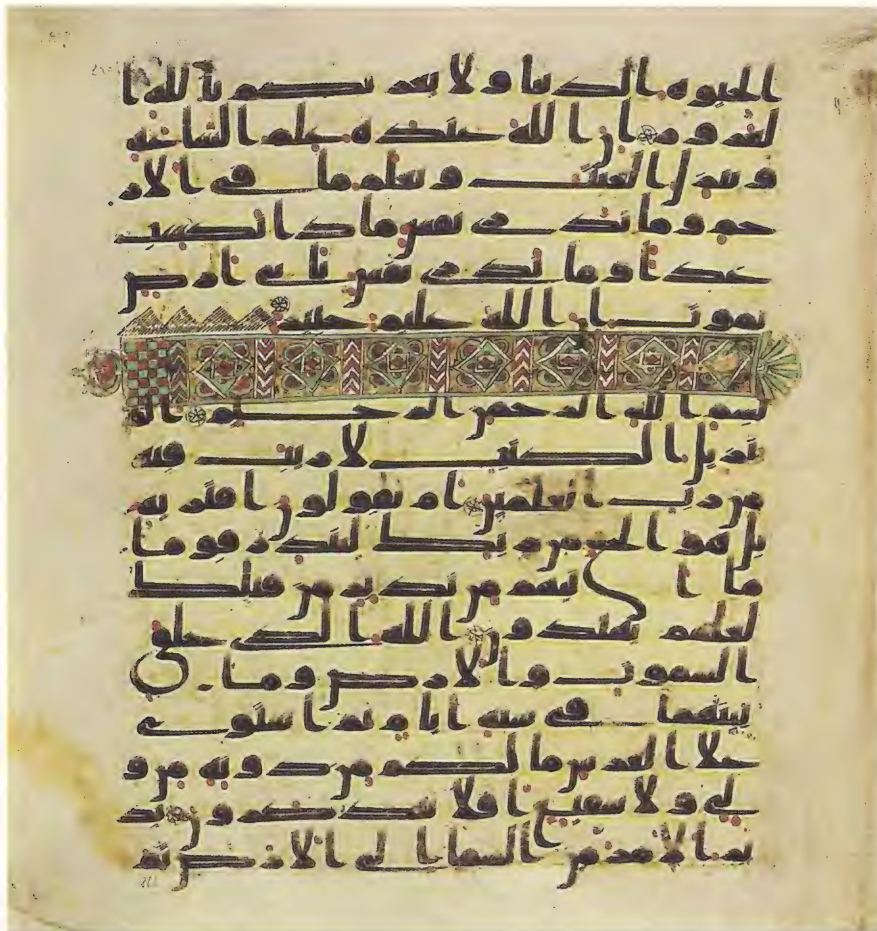 الحيوه الدنيا ولا يغرنكم بالله ا
لغرور ان الله عنده علم الساعه
وينزل الغيث ويعلم ما في الار
حام وما تدري نفس ماذا تكسب
غدا وما تدري نفس باي ارض
تموت ان الله عليم خبير
بسم الله الرحمن الرحيم الم
تنزيل الكتب لا ريب فيه
من رب العلمين ام يقولون افتريه
بل هو الحق من ربك لتنذر قوما
ما اتيهم من نذير من قبلك
لعلهم يهتدون الله الذي خلق
السموت والارض وما
بينهما في سته ايام ثم استوى
علا العرش ما لكم من دونه من و
لي ولا شفيع افلا تتذكرون يد
بر الامر من السما الى الارض ثم